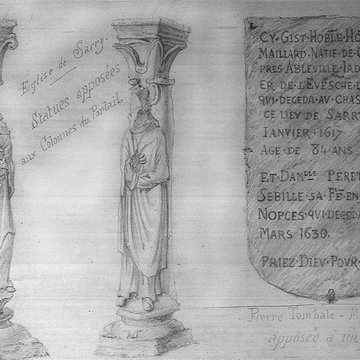 Eglise de Sarry.
Statues apposées
aux Colonnes du Portail.
CY·GIST·HOBLE·HO
MAILLARD·NATIF·DE·
PRES·ABLEVILLE·IAD
ER·DE·L'EVESCHE·D
QVI·DECEDA·AV·CHAS
CE LIEV·DE·SARRY
IANVIER·1617
AGE·DE·84·ANS
ET·DAMlle PERET
SEBILLE·SA·FE·EN
NOPCES·QVI·DECED
MARS 1630.
PRIEZ·DIEV·POVR·
Pierre Tombale - M
apposée à un